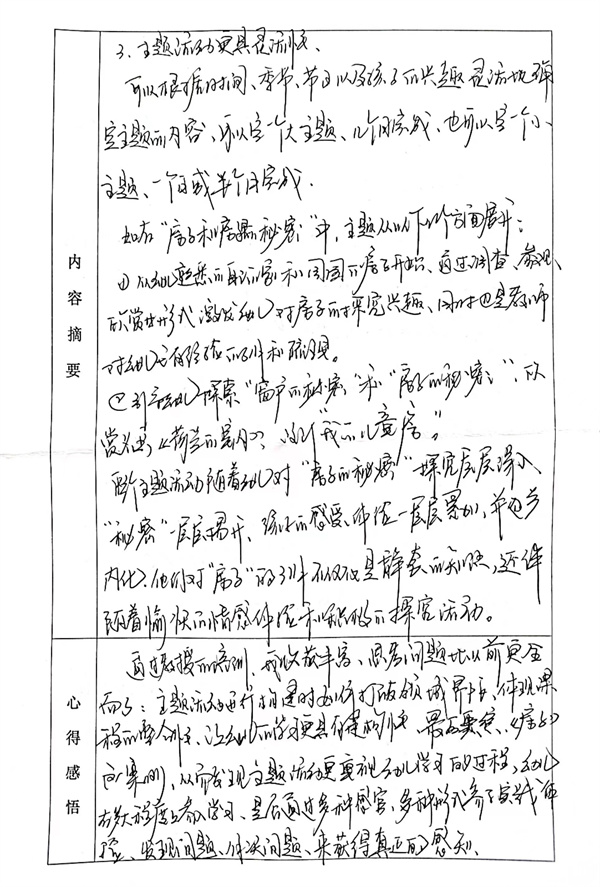 内容摘要
3. 主题活动更具灵活性.
可以根据时间、季节、节日以及孩子的兴趣灵活地确
定主题的内容,可以定一个大主题、几个月完成、也可以定一个小
主题、一个月或半个月完成.
如在“房子和房屋的秘密”中,主题从以下几个方面展开:
① 从幼儿熟悉的自己的家和周围的房子开始、通过调查、参观、
欣赏等形式激发幼儿对房子的探究兴趣、同时也是教师
对幼儿已有经验的
② 引导幼儿探索“窗户的秘密”和“房子的秘密”,欣
赏名画《荷兰的》、设计“我的儿童房”。
整个主题活动随着幼儿对“房子的秘密”探究层层深入、
“秘密”一层层揭开、孩子的感受、体验一层层累加,并逐步
内化.他们对“房子”的不仅仅是静态的知识,还伴
随着愉快的情感体验和积极的探究活动。
心得感悟
通过教授的培训,我收获丰富、思考问题比以前更全
面了:主题活动在进行构建时必须打破领域界限、体现课
程的整合性、让幼儿的学习更具有建构性、《房子》
的案例,从而发现主题活动更重视幼儿学习的过程,幼儿
在多大程度上参与学习、是否通过多种感官、多种形式参与实践体
验、发现问题、解决问题、来获得真正的感知.